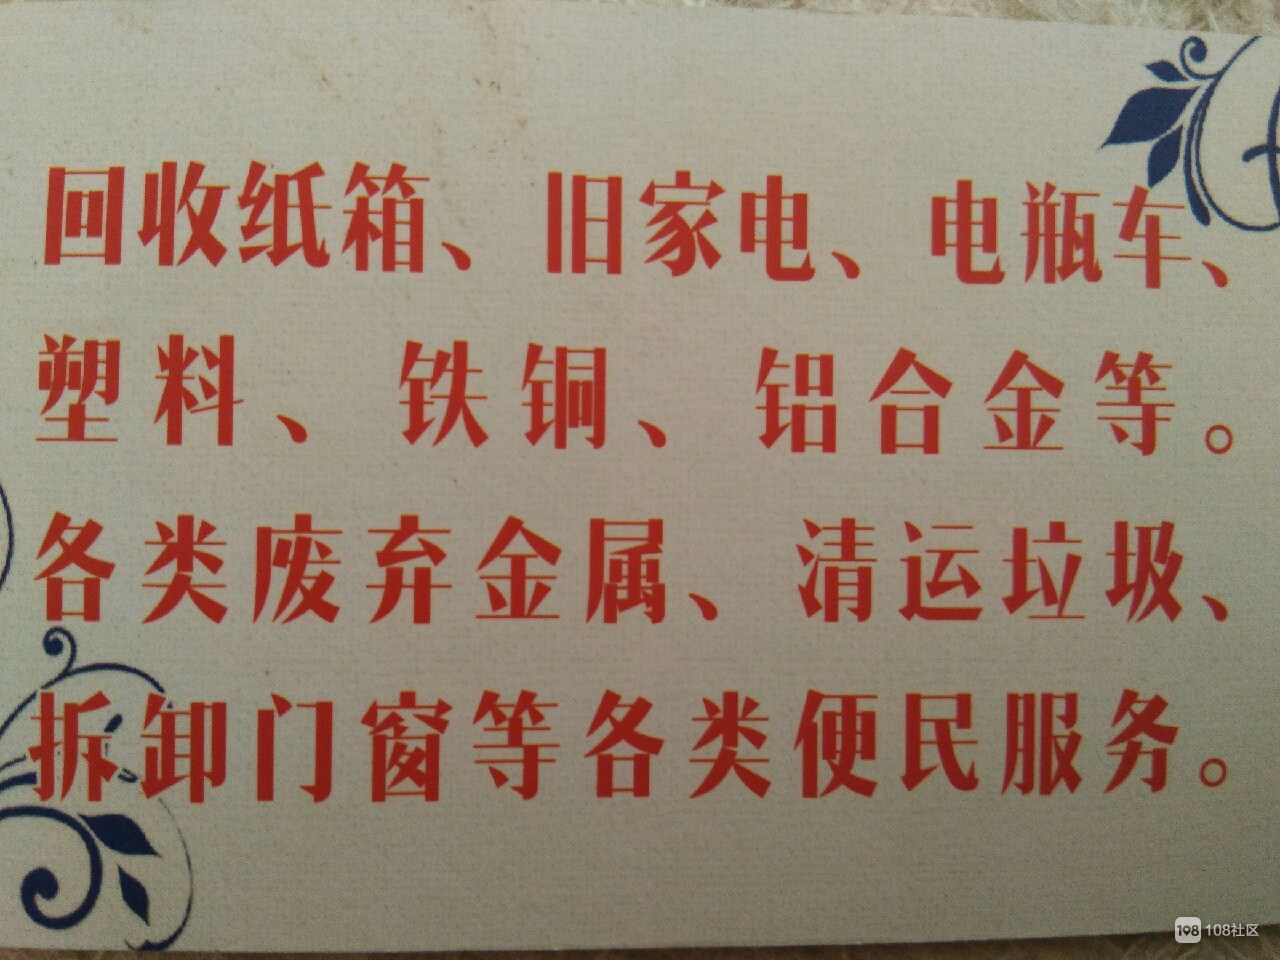 回收纸箱、旧家电、电瓶车、
塑料、铁铜、铝合金等。
各类废弃金属、清运垃圾、
拆卸门窗等各类便民服务。
108社区